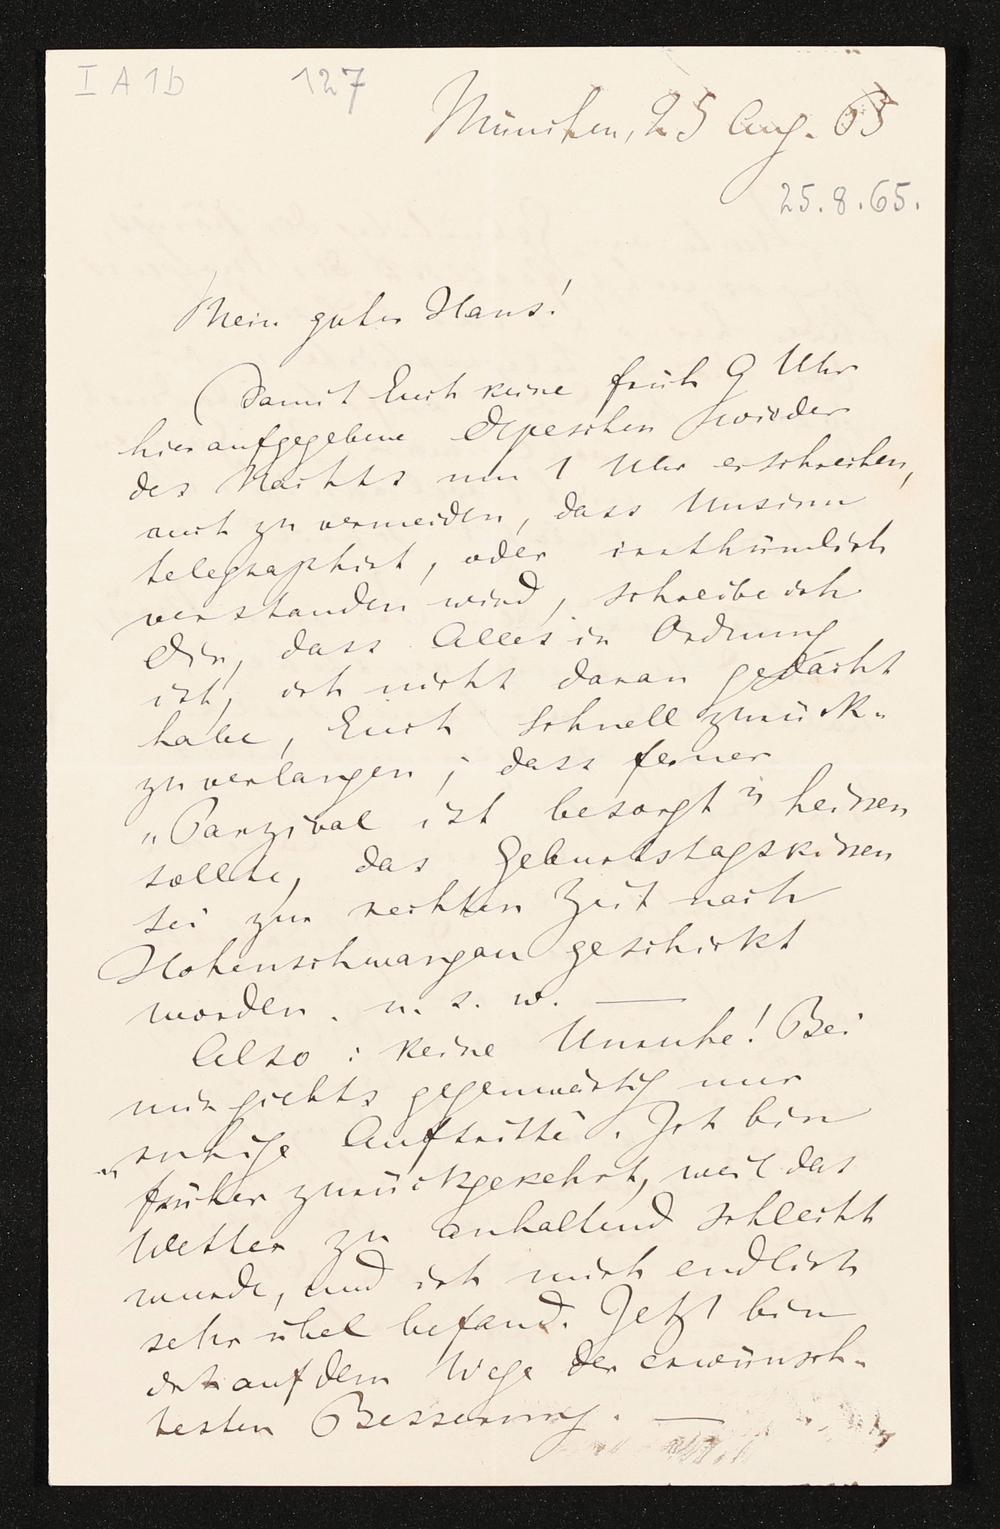 I A 1 b 127
München, 25 Aug. 65
25.8.65.
Mein guter Hans!
Damit Euch keine früh 9 Uhr
hier aufgegebene Depeschen wieder
des Nachts um 1 Uhr erschrecken,
auch zu vermeiden, dass Unsinn
telegraphirt, oder irrthümlich
verstanden wird, schreibe ich
Dir, dass Alles in Ordnung
ist, ich nicht daran gedacht
habe, Euch schnell zurück-
zuverlangen; dass ferner
"Parzival ist besorgt" heissen
sollte, das Geburtstagskissen
sei zur rechten Zeit nach
Hohenschwangau geschickt
worden. u. s. w. —
Also: keine Unruhe! Bei
mir giebts gegenwärtig nur
ruhige Auftritte. Ich bin
früher zurückgekehrt, weil das
Wetter zu anhaltend schlecht
wurde, und ich mich endlich
sehr übel befand. Jetzt bin
ich auf dem Wege der erwünsch-
testen Besserung. —